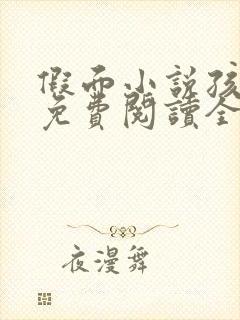 假面小説孩
免費閱讀全
夜漫舞